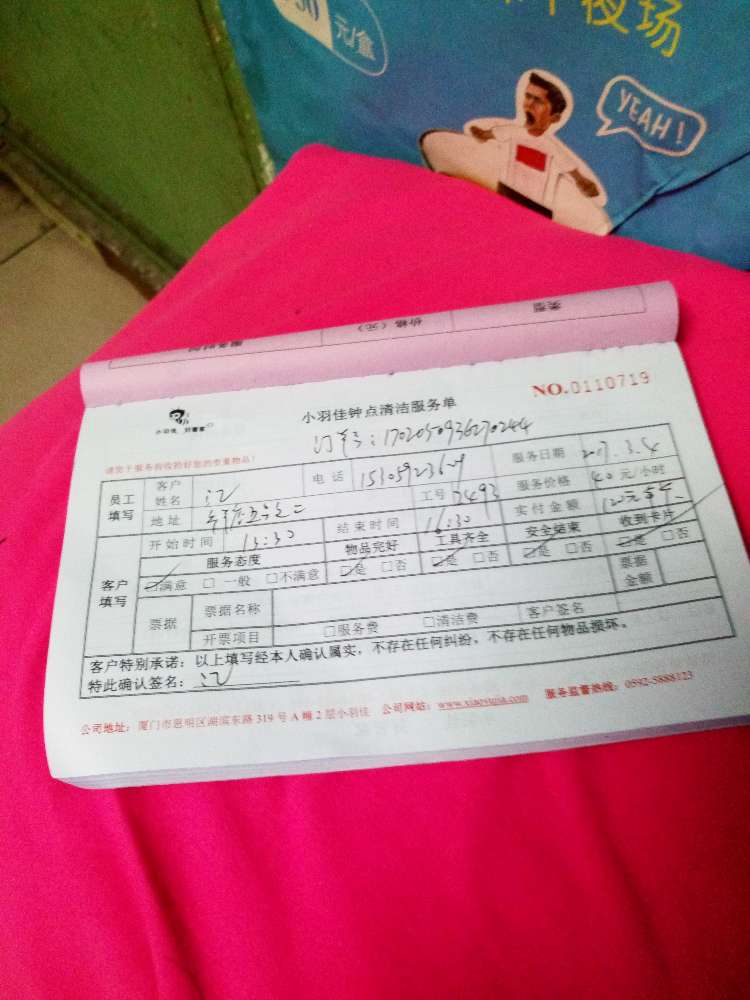 元/盒
夜场
YEAH!
类型
价格（元）
小羽佳钟点清洁服务单
NO.0110719
小羽佳
请您于服务前收拾好您的贵重物品！
订单号：1702050936270244
员工填写
客户姓名
江
电话
服务日期
2017.3.4
地址
工号
服务价格
40元/小时
开始时间
13:30
结束时间
16:30
实付金额
120元
客户填写
服务态度
物品完好
工具齐全
安全结束
收到卡片
☑满意 □一般 □不满意
☑是 □否
☑是 □否
☑是 □否
☑是 □否
票据
票据名称
票据金额
开票项目
□服务费 □清洁费
客户签名
客户特别承诺：以上填写经本人确认属实，不存在任何纠纷，不存在任何物品损坏。
特此确认签名：江
公司地址：厦门市思明区湖滨东路319号A幢2层小羽佳 公司网站：www.xiaoyujia.com 服务监督热线：0592-5888123